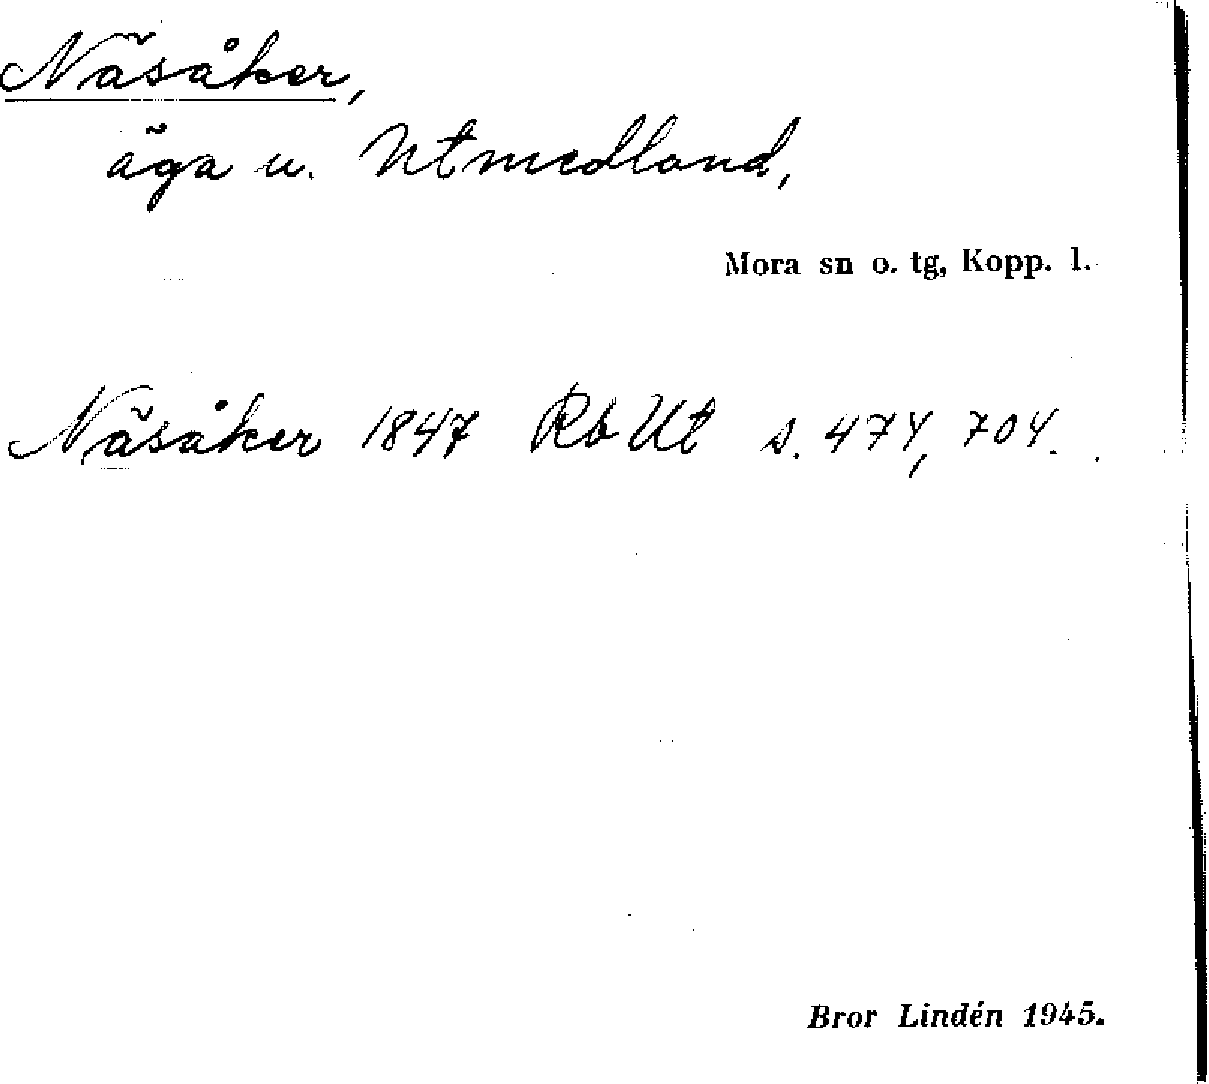 Näsåker,
äga u. Utmedland,
Mora sn o. tg, Kopp. l.
Näsåker 1847 Rb Ut s. 474, 704.
Bror Lindén 1945.